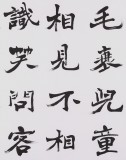 毛衰兒童
相見不相
識笑問客